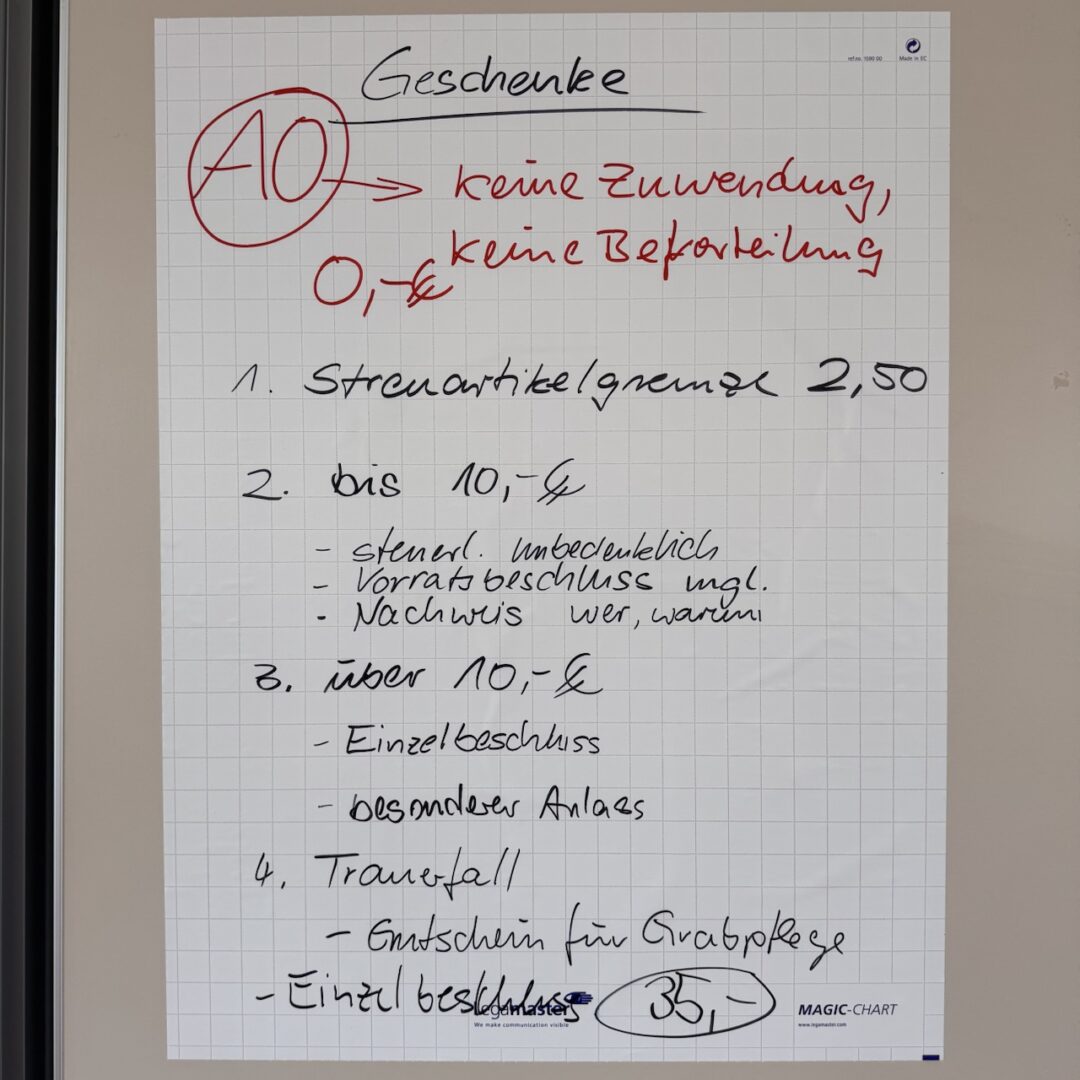 ref.no. 1590 00
Made in EC
Geschenke
AO → keine Zuwendung,
keine Beforteilung
0,-€
1. Streuartikelgrenze 2,50
2. bis 10,-€
- steuerl. unbedenklich
- Vorratsbeschluss mgl.
- Nachweis wer, warum
3. über 10,-€
- Einzelbeschluss
- besonderer Anlass
4. Trauerfall
- Gutschein für Grabpflege
- Einzelbeschluss 35,-
legamaster
We make communication visible
MAGIC-CHART
www.legamaster.com